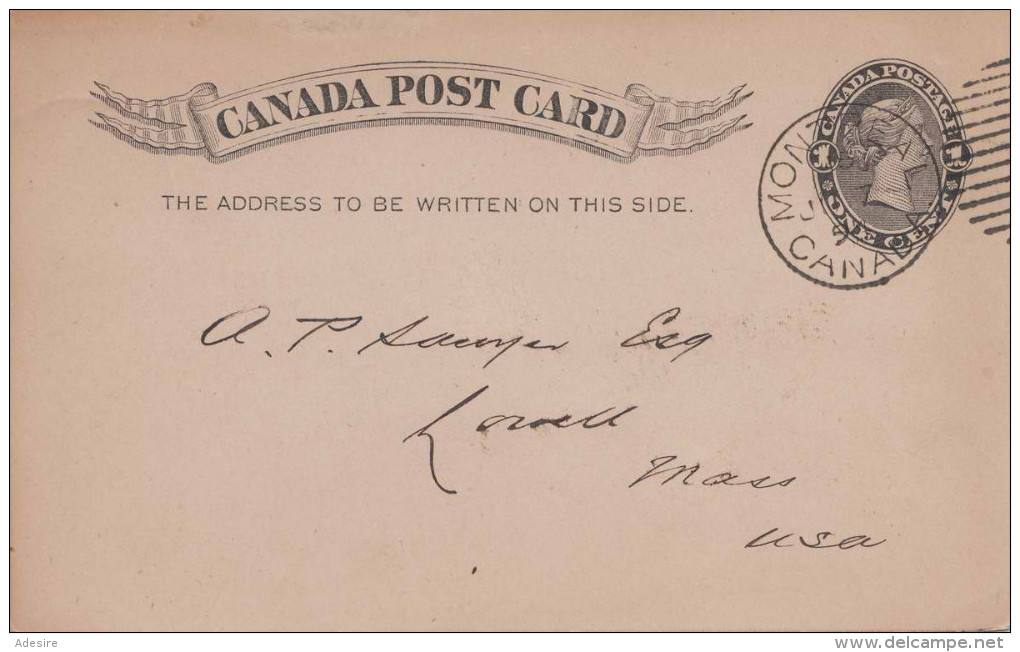 CANADA POST CARD
CANADA POSTAGE
ONE CENT
THE ADDRESS TO BE WRITTEN ON THIS SIDE.
CANADA
A. P. Sawyer Esq
Lowell
Mass
USA
Adesire
www.delcampe.net